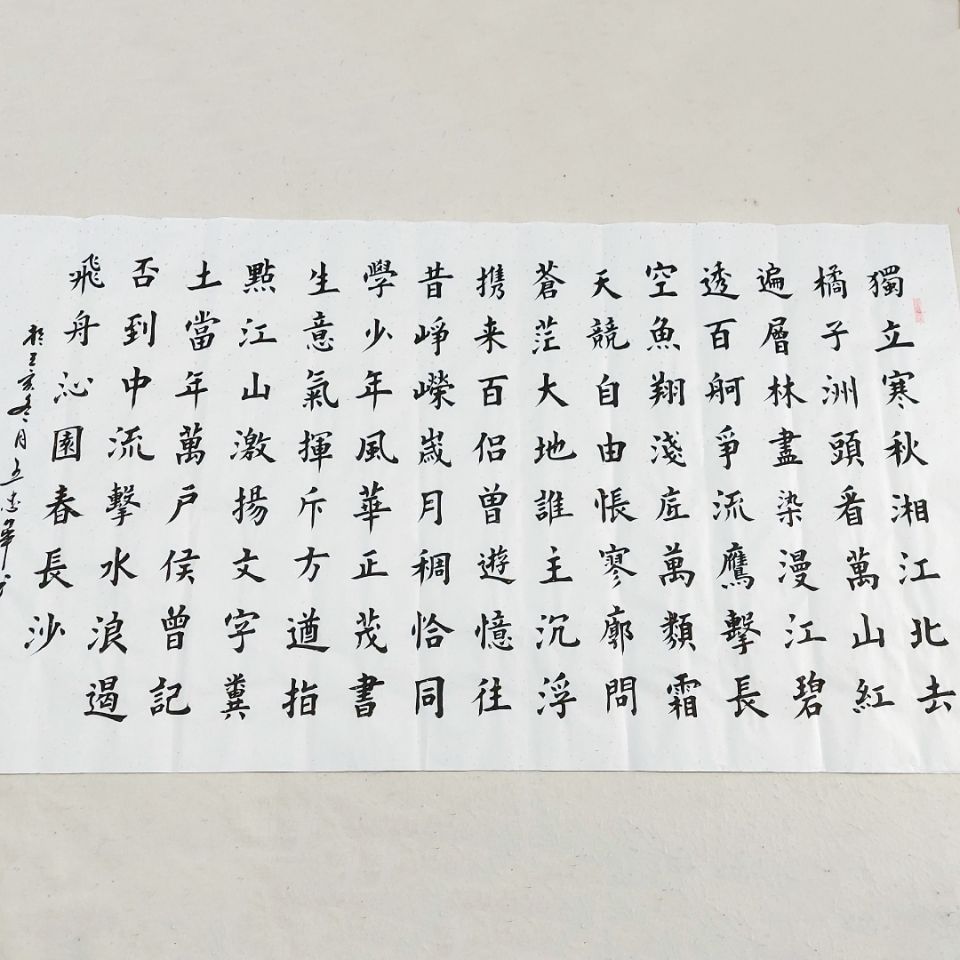 獨立寒秋湘江北去
橘子洲頭看萬山紅
遍層林盡染漫江碧
透百舸爭流鷹擊長
空魚翔淺底萬類霜
天競自由悵寥廓問
蒼茫大地誰主沉浮
携来百侣曾遊憶往
昔崢嶸嵗月稠恰同
學少年風華正茂書
生意氣揮斥方遒指
點江山激揚文字糞
土當年萬戶侯曾記
否到中流擊水浪遏
飛舟沁園春長沙
亥冬月